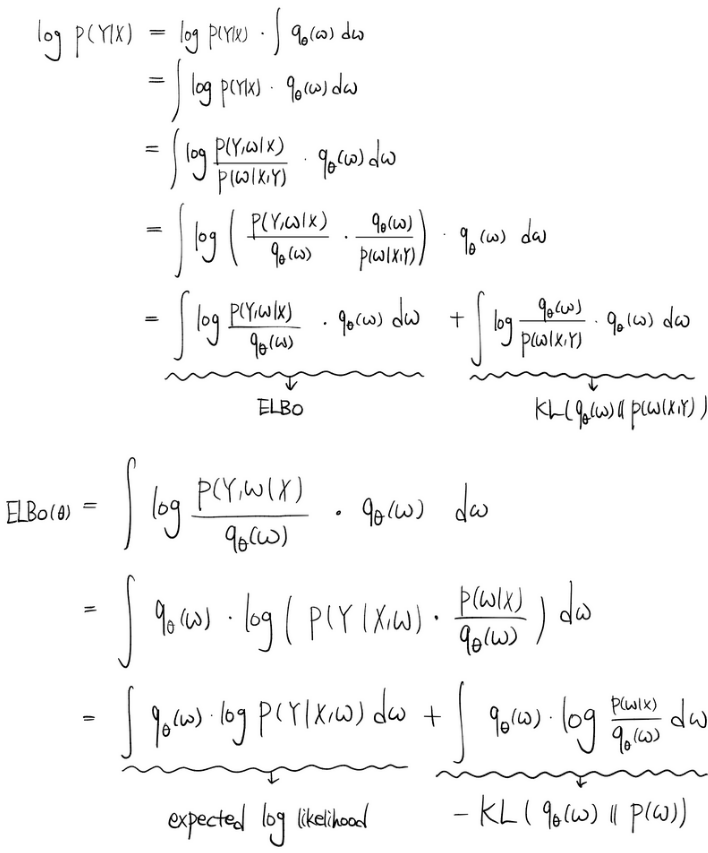 log P(Y|X) = log P(Y|X) · ∫ q_θ(ω) dω
= ∫ log P(Y|X) · q_θ(ω) dω
= ∫ log \frac{P(Y,ω|X)}{P(ω|X,Y)} · q_θ(ω) dω
= ∫ log ( \frac{P(Y,ω|X)}{q_θ(ω)} · \frac{q_θ(ω)}{P(ω|X,Y)} ) · q_θ(ω) dω
= ∫ log \frac{P(Y,ω|X)}{q_θ(ω)} · q_θ(ω) dω + ∫ log \frac{q_θ(ω)}{P(ω|X,Y)} · q_θ(ω) dω
ELBO KL(q_θ(ω) || P(ω|X,Y))
ELBO(θ) = ∫ log \frac{P(Y,ω|X)}{q_θ(ω)} · q_θ(ω) dω
= ∫ q_θ(ω) · log ( P(Y|X,ω) · \frac{P(ω|X)}{q_θ(ω)} ) dω
= ∫ q_θ(ω) · log P(Y|X,ω) dω + ∫ q_θ(ω) · log \frac{P(ω|X)}{q_θ(ω)} dω
expected log likelihood - KL( q_θ(ω) || P(ω))